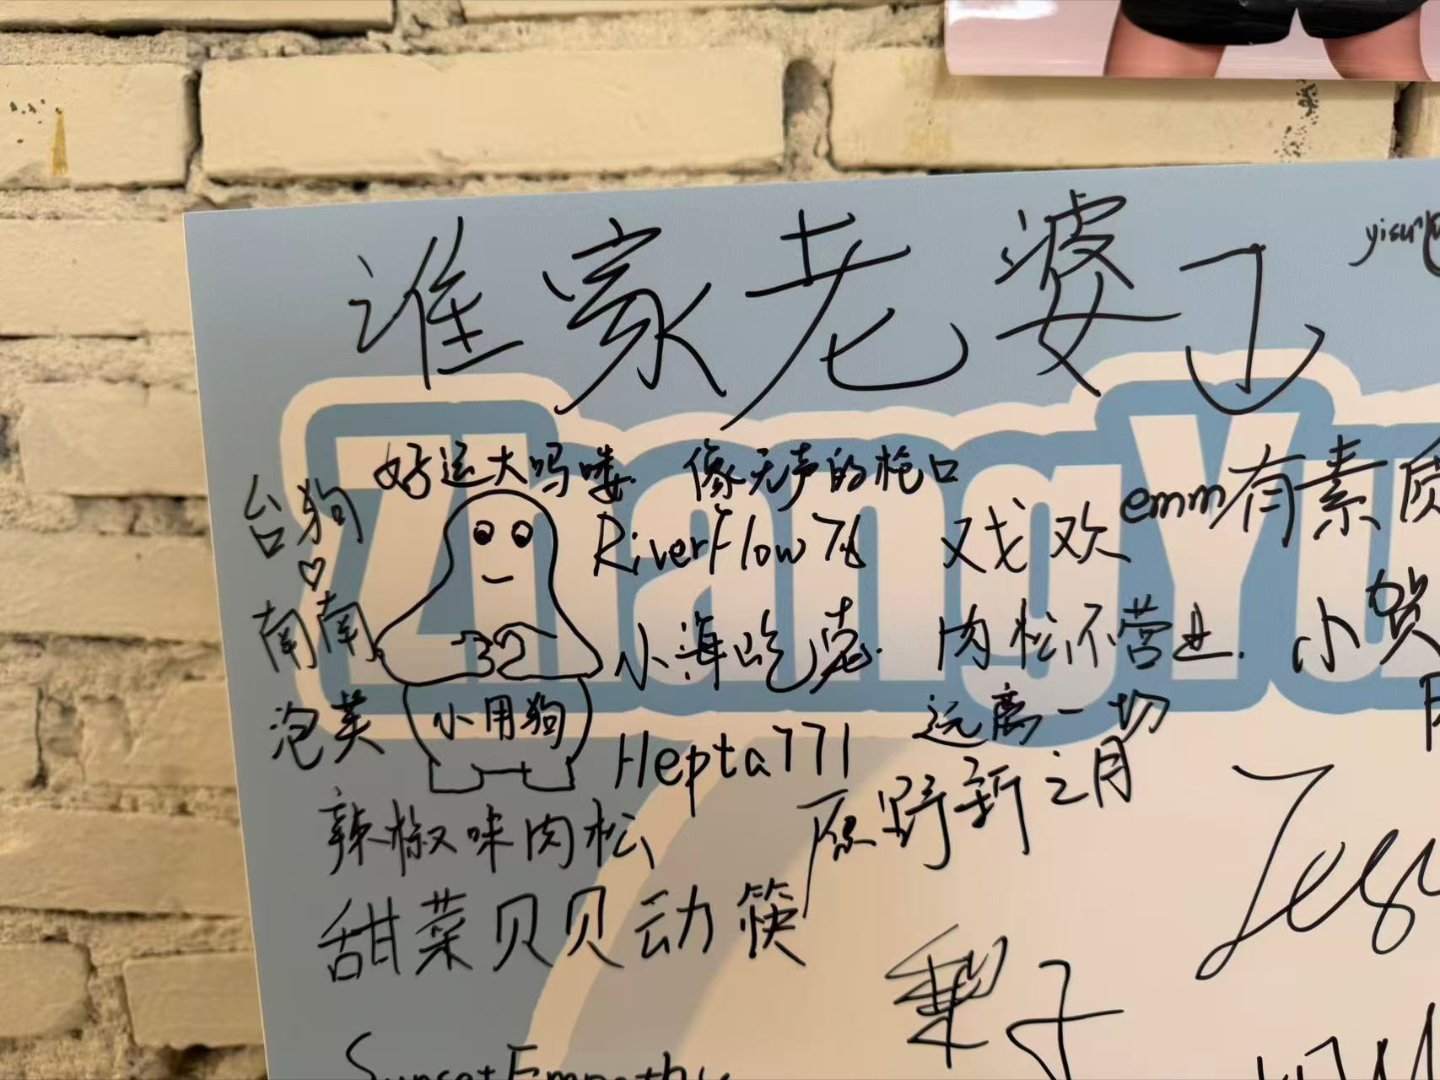 谁家老婆了
ZhangYu
好运大吗喽
像无声的枪口
emm有素质
台狗♡南南泡芙
32
小用狗
RiverFlow
戏欢
肉松不营业.
小贺
Hepta771
远离一切
原野新之月
辣椒味肉松
甜菜贝贝动筷
梨子
SunsetEmpathy